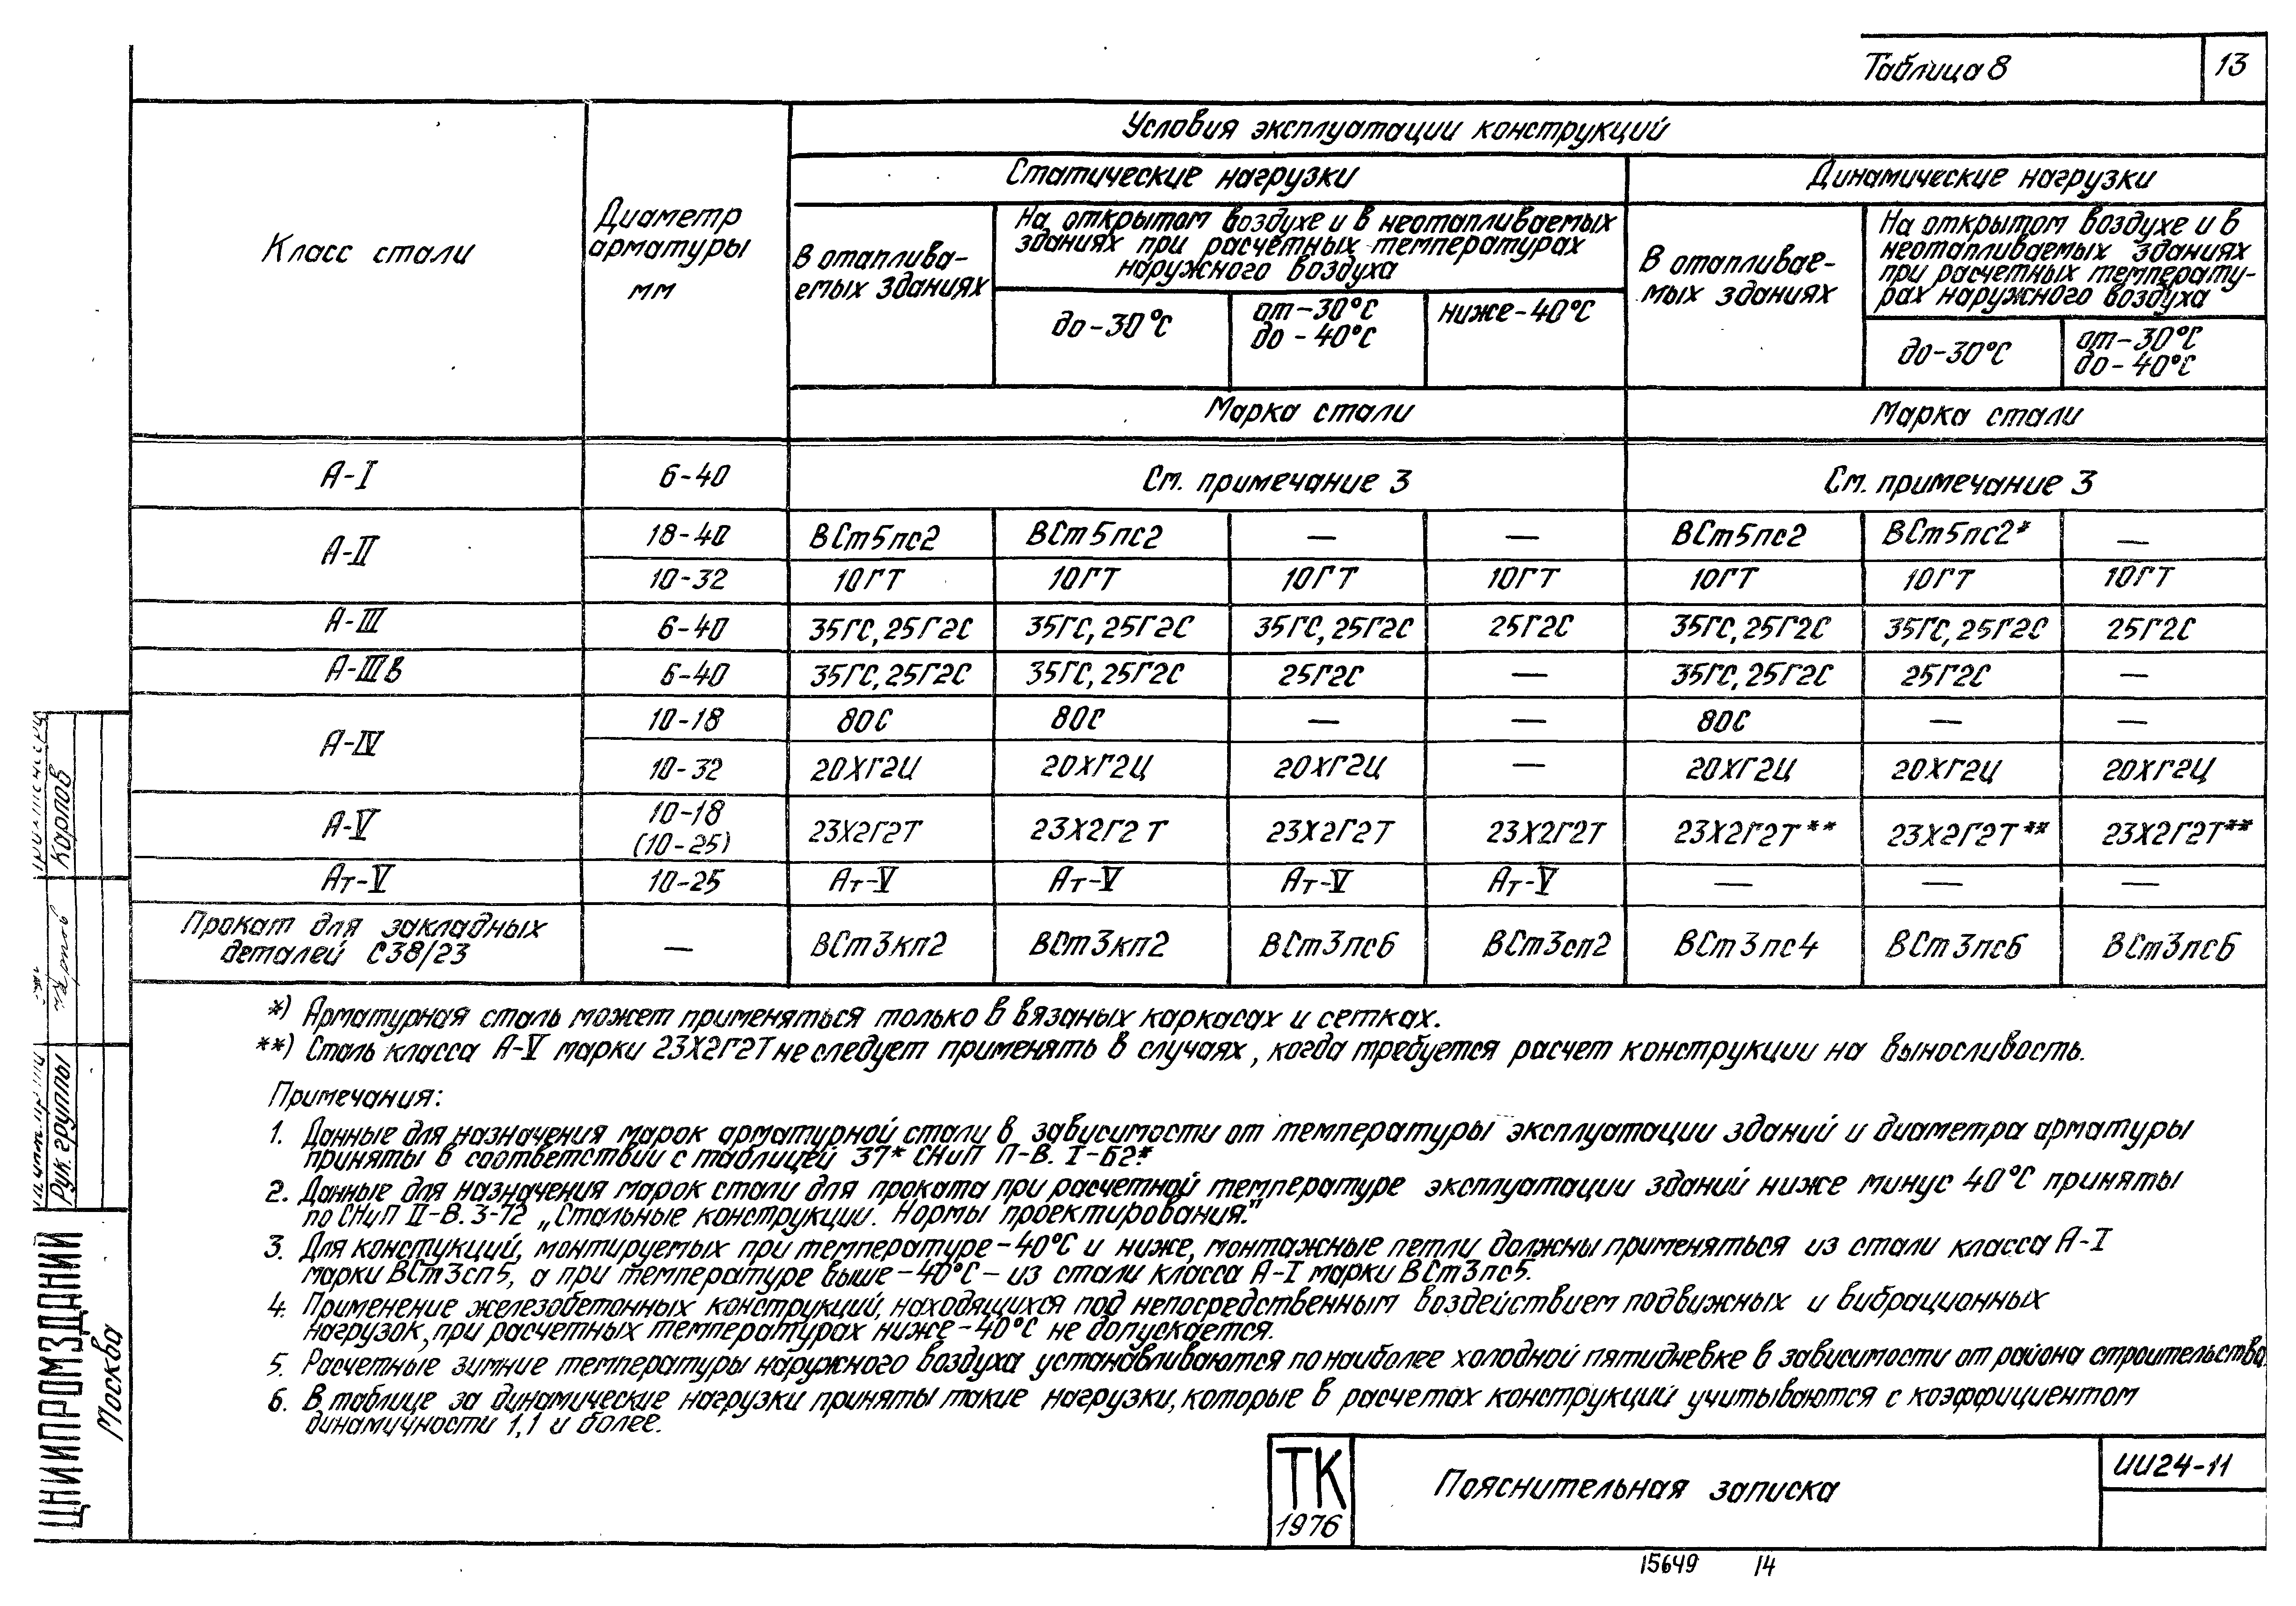 Таблица 8
13
Класс стали
Диаметр
арматуры
мм
Условия эксплуатации конструкций
Статические нагрузки
Динамические нагрузки
В отаплива-
емых зданиях
На открытом воздухе и в неотапливаемых
зданиях при расчетных температурах
наружного воздуха
В отапливае-
мых зданиях
На открытом воздухе и в
неотапливаемых зданиях
при расчетных температу-
рах наружного воздуха
до-30°С
от-30°С
до-40°С
ниже-40°С
до-30°С
от-30°С
до-40°С
Марка стали
Марка стали
А-I 6-40 См. примечание 3 См. примечание 3
А-II
18-40 ВСт5пс2 ВСт5пс2 — — ВСт5пс2 ВСт5пс2* —
10-32 10ГТ 10ГТ 10ГТ 10ГТ 10ГТ 10ГТ 10ГТ
А-III 6-40 35ГС,25Г2С 35ГС,25Г2С 35ГС,25Г2С 25Г2С 35ГС,25Г2С 35ГС,25Г2С 25Г2С
А-IIIв 6-40 35ГС,25Г2С 35ГС,25Г2С 25Г2С — 35ГС,25Г2С 25Г2С —
А-IV
10-18 80С 80С — — 80С — —
10-32 20ХГ2Ц 20ХГ2Ц 20ХГ2Ц — 20ХГ2Ц 20ХГ2Ц 20ХГ2Ц
А-V
10-18
(10-25)
23Х2Г2Т 23Х2Г2Т 23Х2Г2Т 23Х2Г2Т 23Х2Г2Т** 23Х2Г2Т** 23Х2Г2Т**
Ат-V 10-25 Ат-V Ат-V Ат-V Ат-V — — —
Прокат для закладных
деталей С38/23
— ВСт3кп2 ВСт3кп2 ВСт3пс6 ВСт3сп2 ВСт3пс4 ВСт3пс6 ВСт3пс6
*) Арматурная сталь может применяться только в вязаных каркасах и сетках.
**) Сталь класса А-V марки 23Х2Г2Т не следует применять в случаях, когда требуется расчет конструкции на выносливость.
Примечания:
1. Данные для назначения марок арматурной стали в зависимости от температуры эксплуатации зданий и диаметра арматуры
приняты в соответствии с таблицей 37* СНиП П-В. I-62*.
2. Данные для назначения марок стали для проката при расчетной температуре эксплуатации зданий ниже минус 40°С приняты
по СНиП II-В. 3-72 „Стальные конструкции. Нормы проектирования."
3. Для констукций, монтируемых при температуре-40°С и ниже, монтажные петли должны применяться из стали класса А-I
марки ВСт3сп5, а при температуре выше-40°С-из стали класса А-I марки ВСт3пс5.
4. Применение железобетонных конструкций, находящихся под непосредственным воздействием подвижных и вибрационных
нагрузок, при расчетных температурах ниже-40°С не допускается.
5. Расчетные зимние температуры наружного воздуха устанавливаются по наиболее холодной пятидневке в зависимости от района строительства
6. В таблице за динамические нагрузки приняты такие нагрузки, которые в расчетах конструкций учитываются с коэффициентом
динамичности 1,1 и более.
Карпов
Рук. группы
ЦНИИПРОМЗДАНИЙ
Москва
ТК
1976
Пояснительная записка
ИИ24-11
15649 14